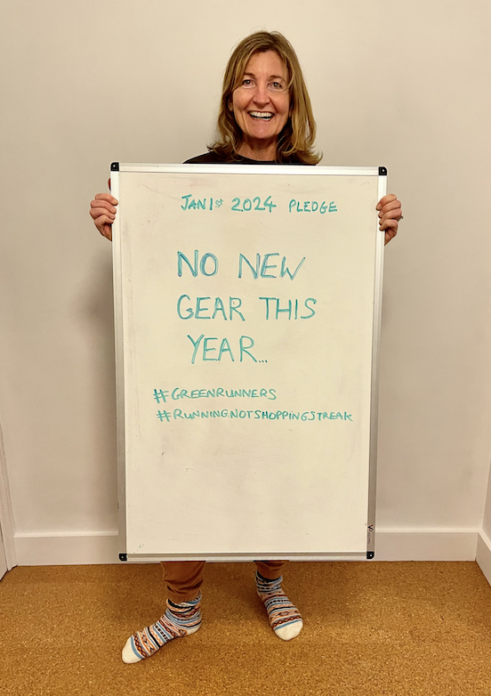 JAN 1st 2024 PLEDGE
NO NEW
GEAR THIS
YEAR...
#GREENRUNNERS
#RUNNINGNOTSHOPPINGSTREAK